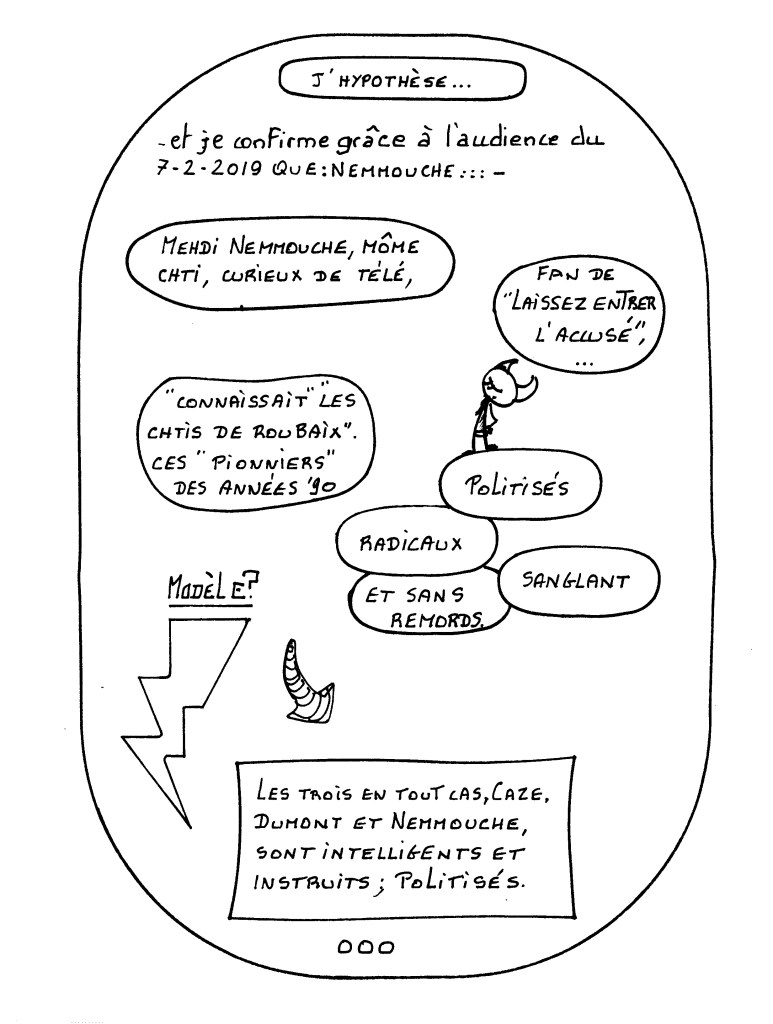 J'HYPOTHÈSE...
-et je confirme grâce à l'audience du
7-2-2019 QUE: NEMMOUCHE::: -
MEHDI NEMMOUCHE, MÔME
CHTI, CURIEUX DE TÉLÉ,
FAN DE
"LAISSEZ ENTRER
L'ACCUSÉ",
...
"CONNAISSAIT" "LES
CHTIS DE ROUBAIX".
CES "PIONNIERS"
DES ANNÉES '90
POLITISÉS
RADICAUX
SANGLANT
ET SANS
REMORDS.
MODÈLE?
LES TROIS EN TOUT CAS, CAZE,
DUMONT ET NEMMOUCHE,
SONT INTELLIGENTS ET
INSTRUITS; POLITISÉS.
ooo